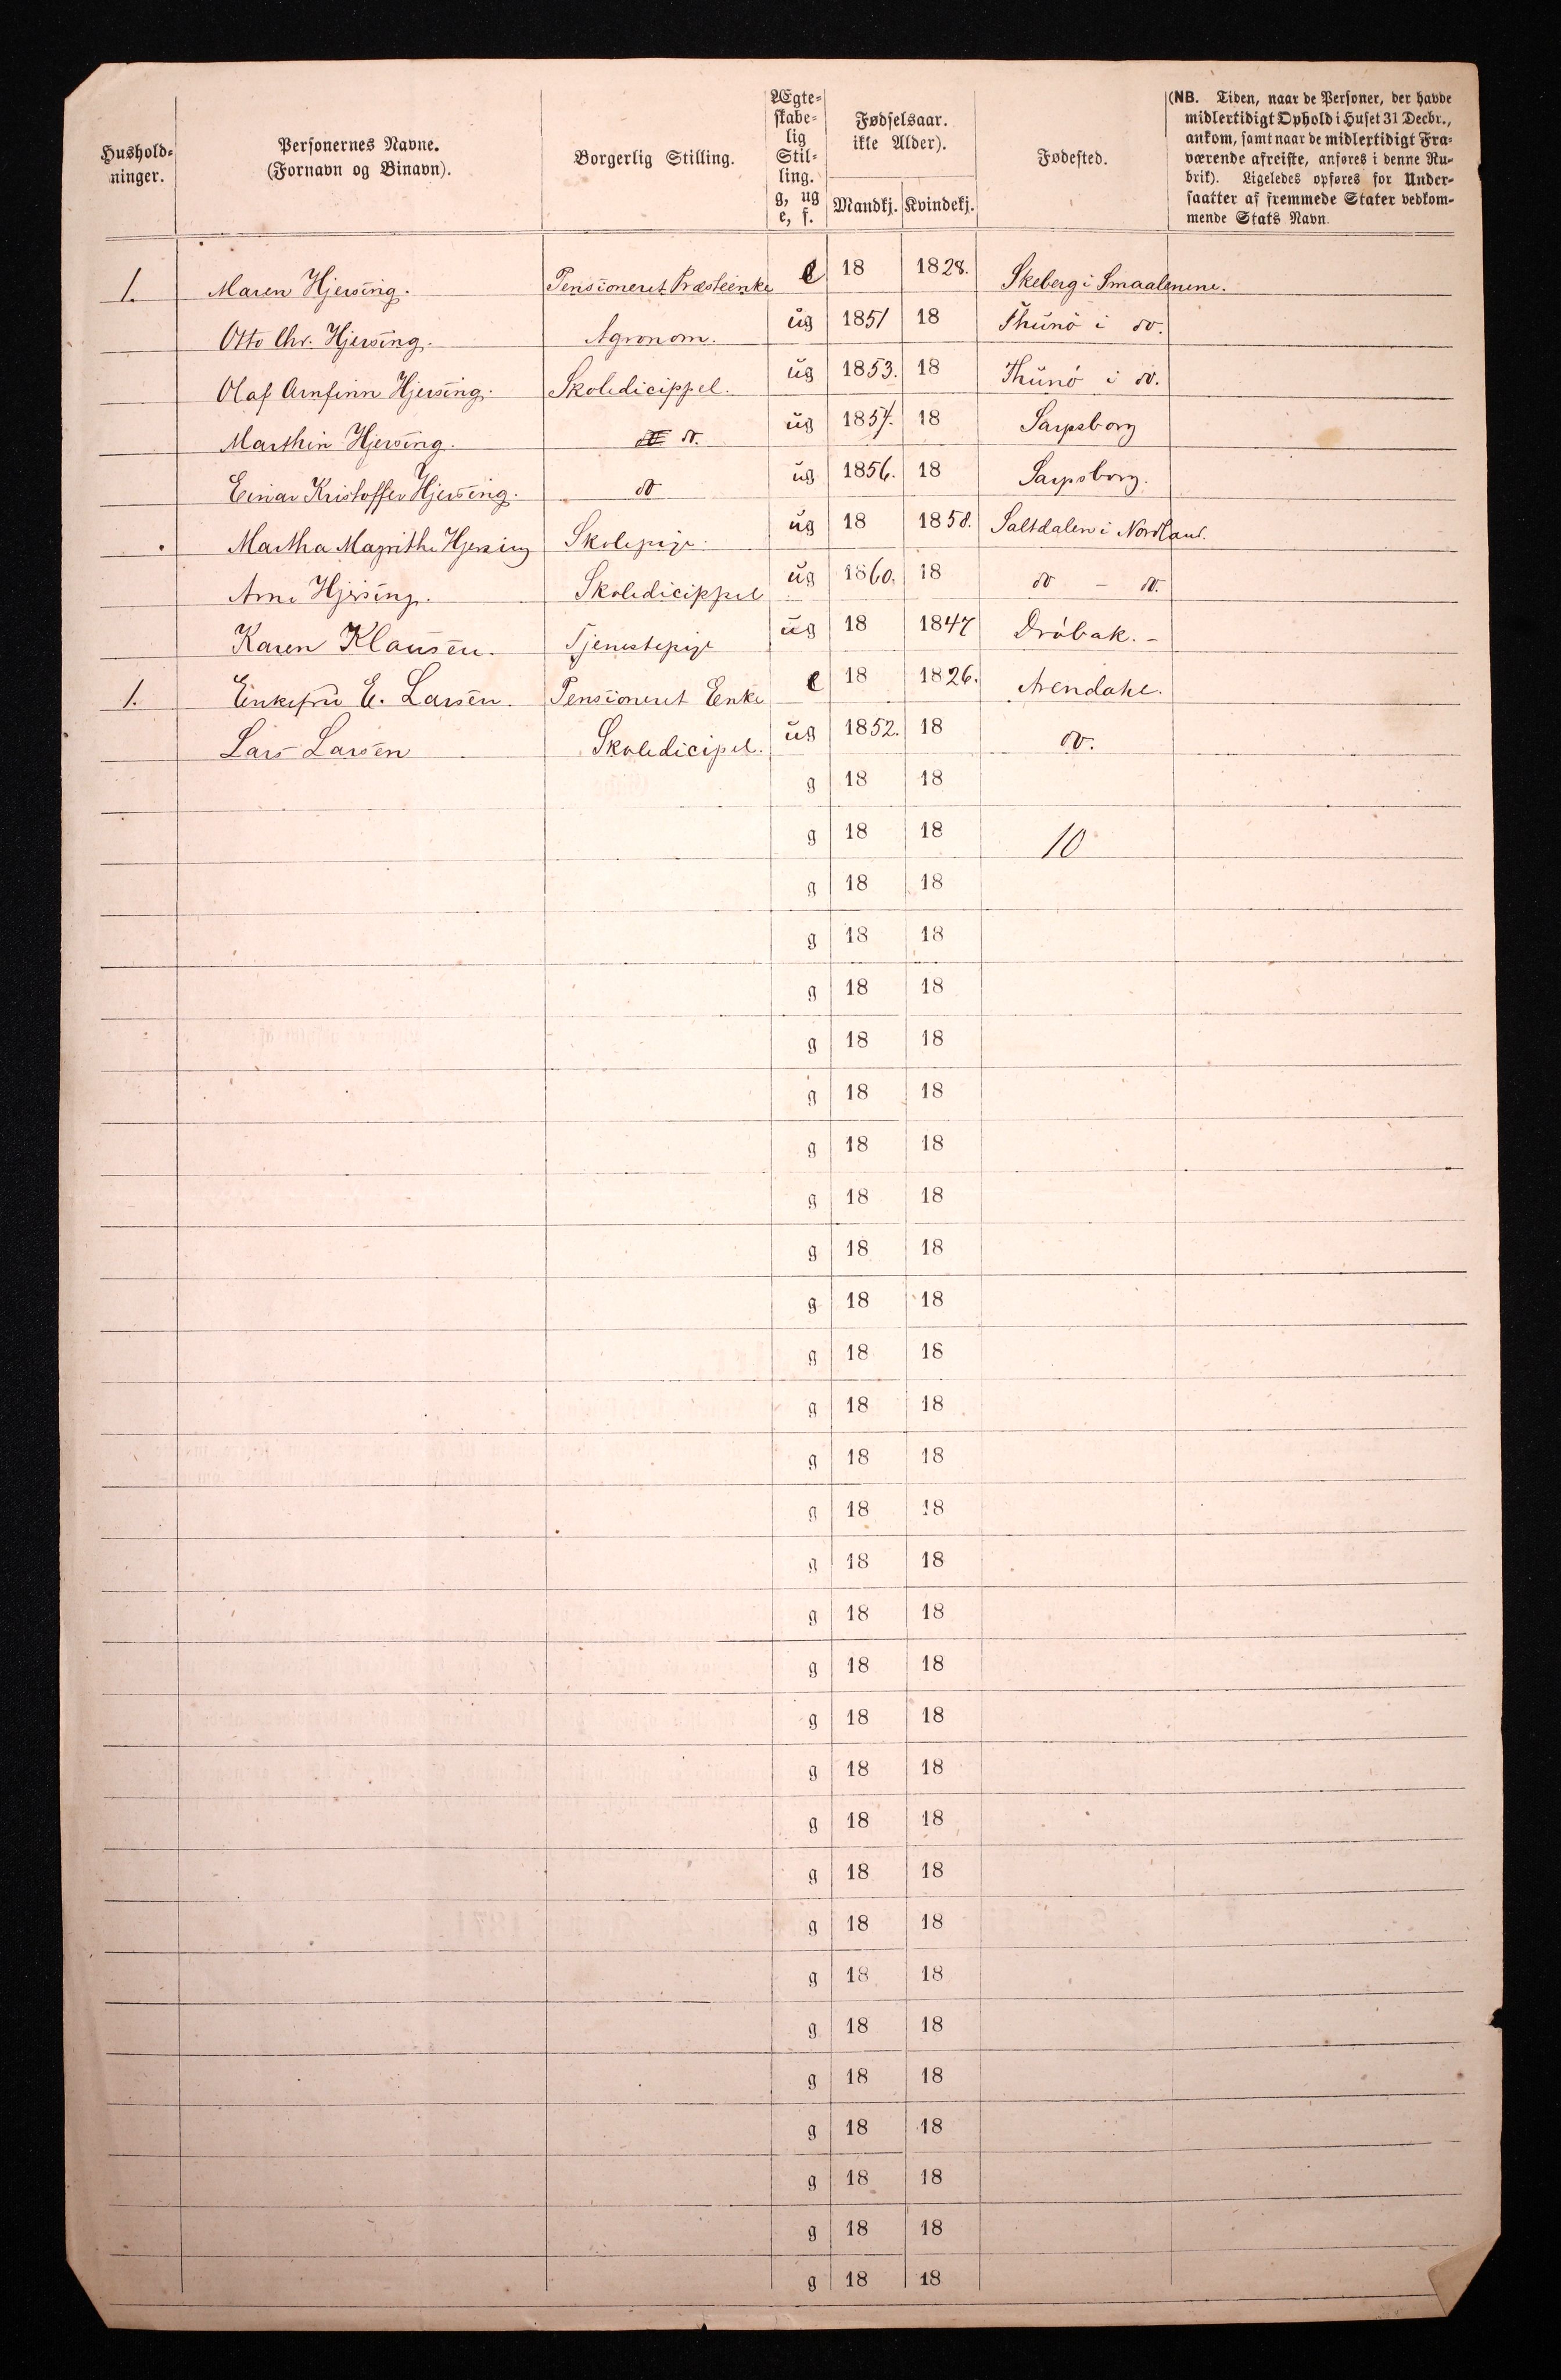 Hushold-
ninger.
Personernes Navne.
(Fornavn og Binavn).
Borgerlig Stilling.
Ægte-
skabe-
lig
Stil-
ling.
g, ug
e, f.
Fødselsaar.
ikke Alder).
Mandkj. Kvindekj.
Fødested.
(NB. Tiden, naar de Personer, der havde
midlertidigt Ophold i Huset 31 Decbr.,
ankom, samt naar de midlertidigt Fra-
værende afreiste, anføres i denne Ru-
brik). Ligeledes opføres for Under-
saatter af fremmede Stater vedkom-
mende Stats Navn.
1. Maren Hjersing. Pensioneret Præsteenke e 18 1828. Skeberg i Smaalenene.
Otto Chr. Hjersing. Agronom. ug 1851 18 Thunö i do.
Olaf Arnfinn Hjersing. Skoledicippel. ug 1853. 18 Thunö i do.
Marthin Hjersing. do do. ug 1854. 18 Sarpsborg
Einar Kristoffer Hjersing. do ug 1856. 18 Sarpsborg.
Martha Magrithe Hjersing Skolepige. ug 18 1858. Saltdalen i Nordland.
Arne Hjersing. Skoledicippel ug 1860. 18 do - do.
Karen Klausen. Tjenestepige ug 18 1847 Dröbak. -
1. Enkefru E. Larsen. Pensioneret Enke e 18 1826. Arendahl.
Lars Larsen Skoledicipel. ug 1852. 18 do.
g 18 18
g 18 18 10
g 18 18
g 18 18
g 18 18
g 18 18
g 18 18
g 18 18
g 18 18
g 18 18
g 18 18
g 18 18
g 18 18
g 18 18
g 18 18
g 18 18
g 18 18
g 18 18
g 18 18
g 18 18
g 18 18
g 18 18
g 18 18
g 18 18
g 18 18
g 18 18
g 18 18
g 18 18
g 18 18
g 18 18